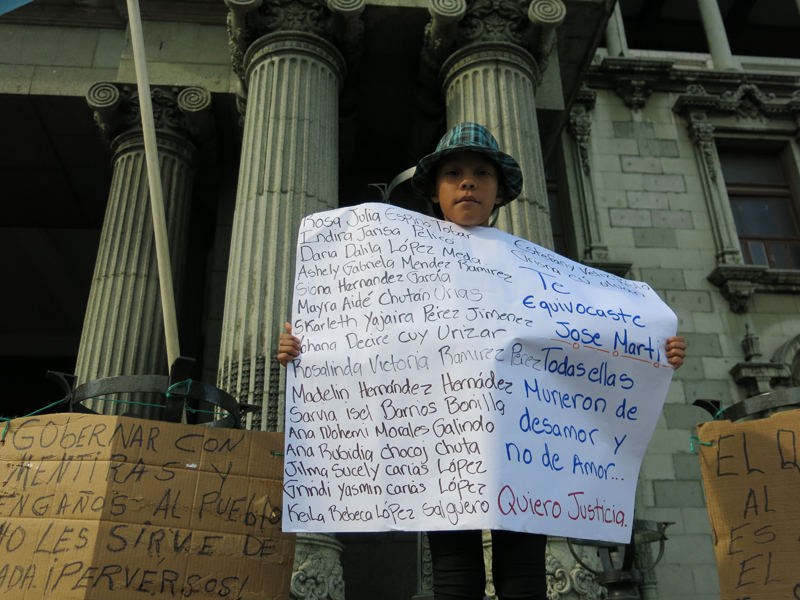 Rosa Julia Espino Tobar
Indira Jarisa Pelicó
Daria Dalila López Meda.
Ashely Gabriela Mendez Ramirez
Siona Hernandez García
Mayra Aidé Chután Urias
Skarleth Yajaira Pérez Jimenez
Yohana Decire cuy Urizar
Rosalinda Victoria Ramirez Pérez
Madelin Hernández Hernádez
Sarvia Isel Barrios Bonilla
Ana Nohemi Morales Galindo
Ana Rubidia chocoj chuta
Jilma Sucely carias López
Grindi Yasmin carias López
Keila Rebeca López Salguero
Te
Equivocaste
Jose Marti
Todas ellas
Murieron de
desamor y
no de Amor...
Quiero Justicia.
GOBERNAR CON
MENTIRAS Y
ENGAÑOS AL PUEblo
NO LES SIRVE DE
NADA. ¡PERVERSOS!
EL
AL
ES
EL